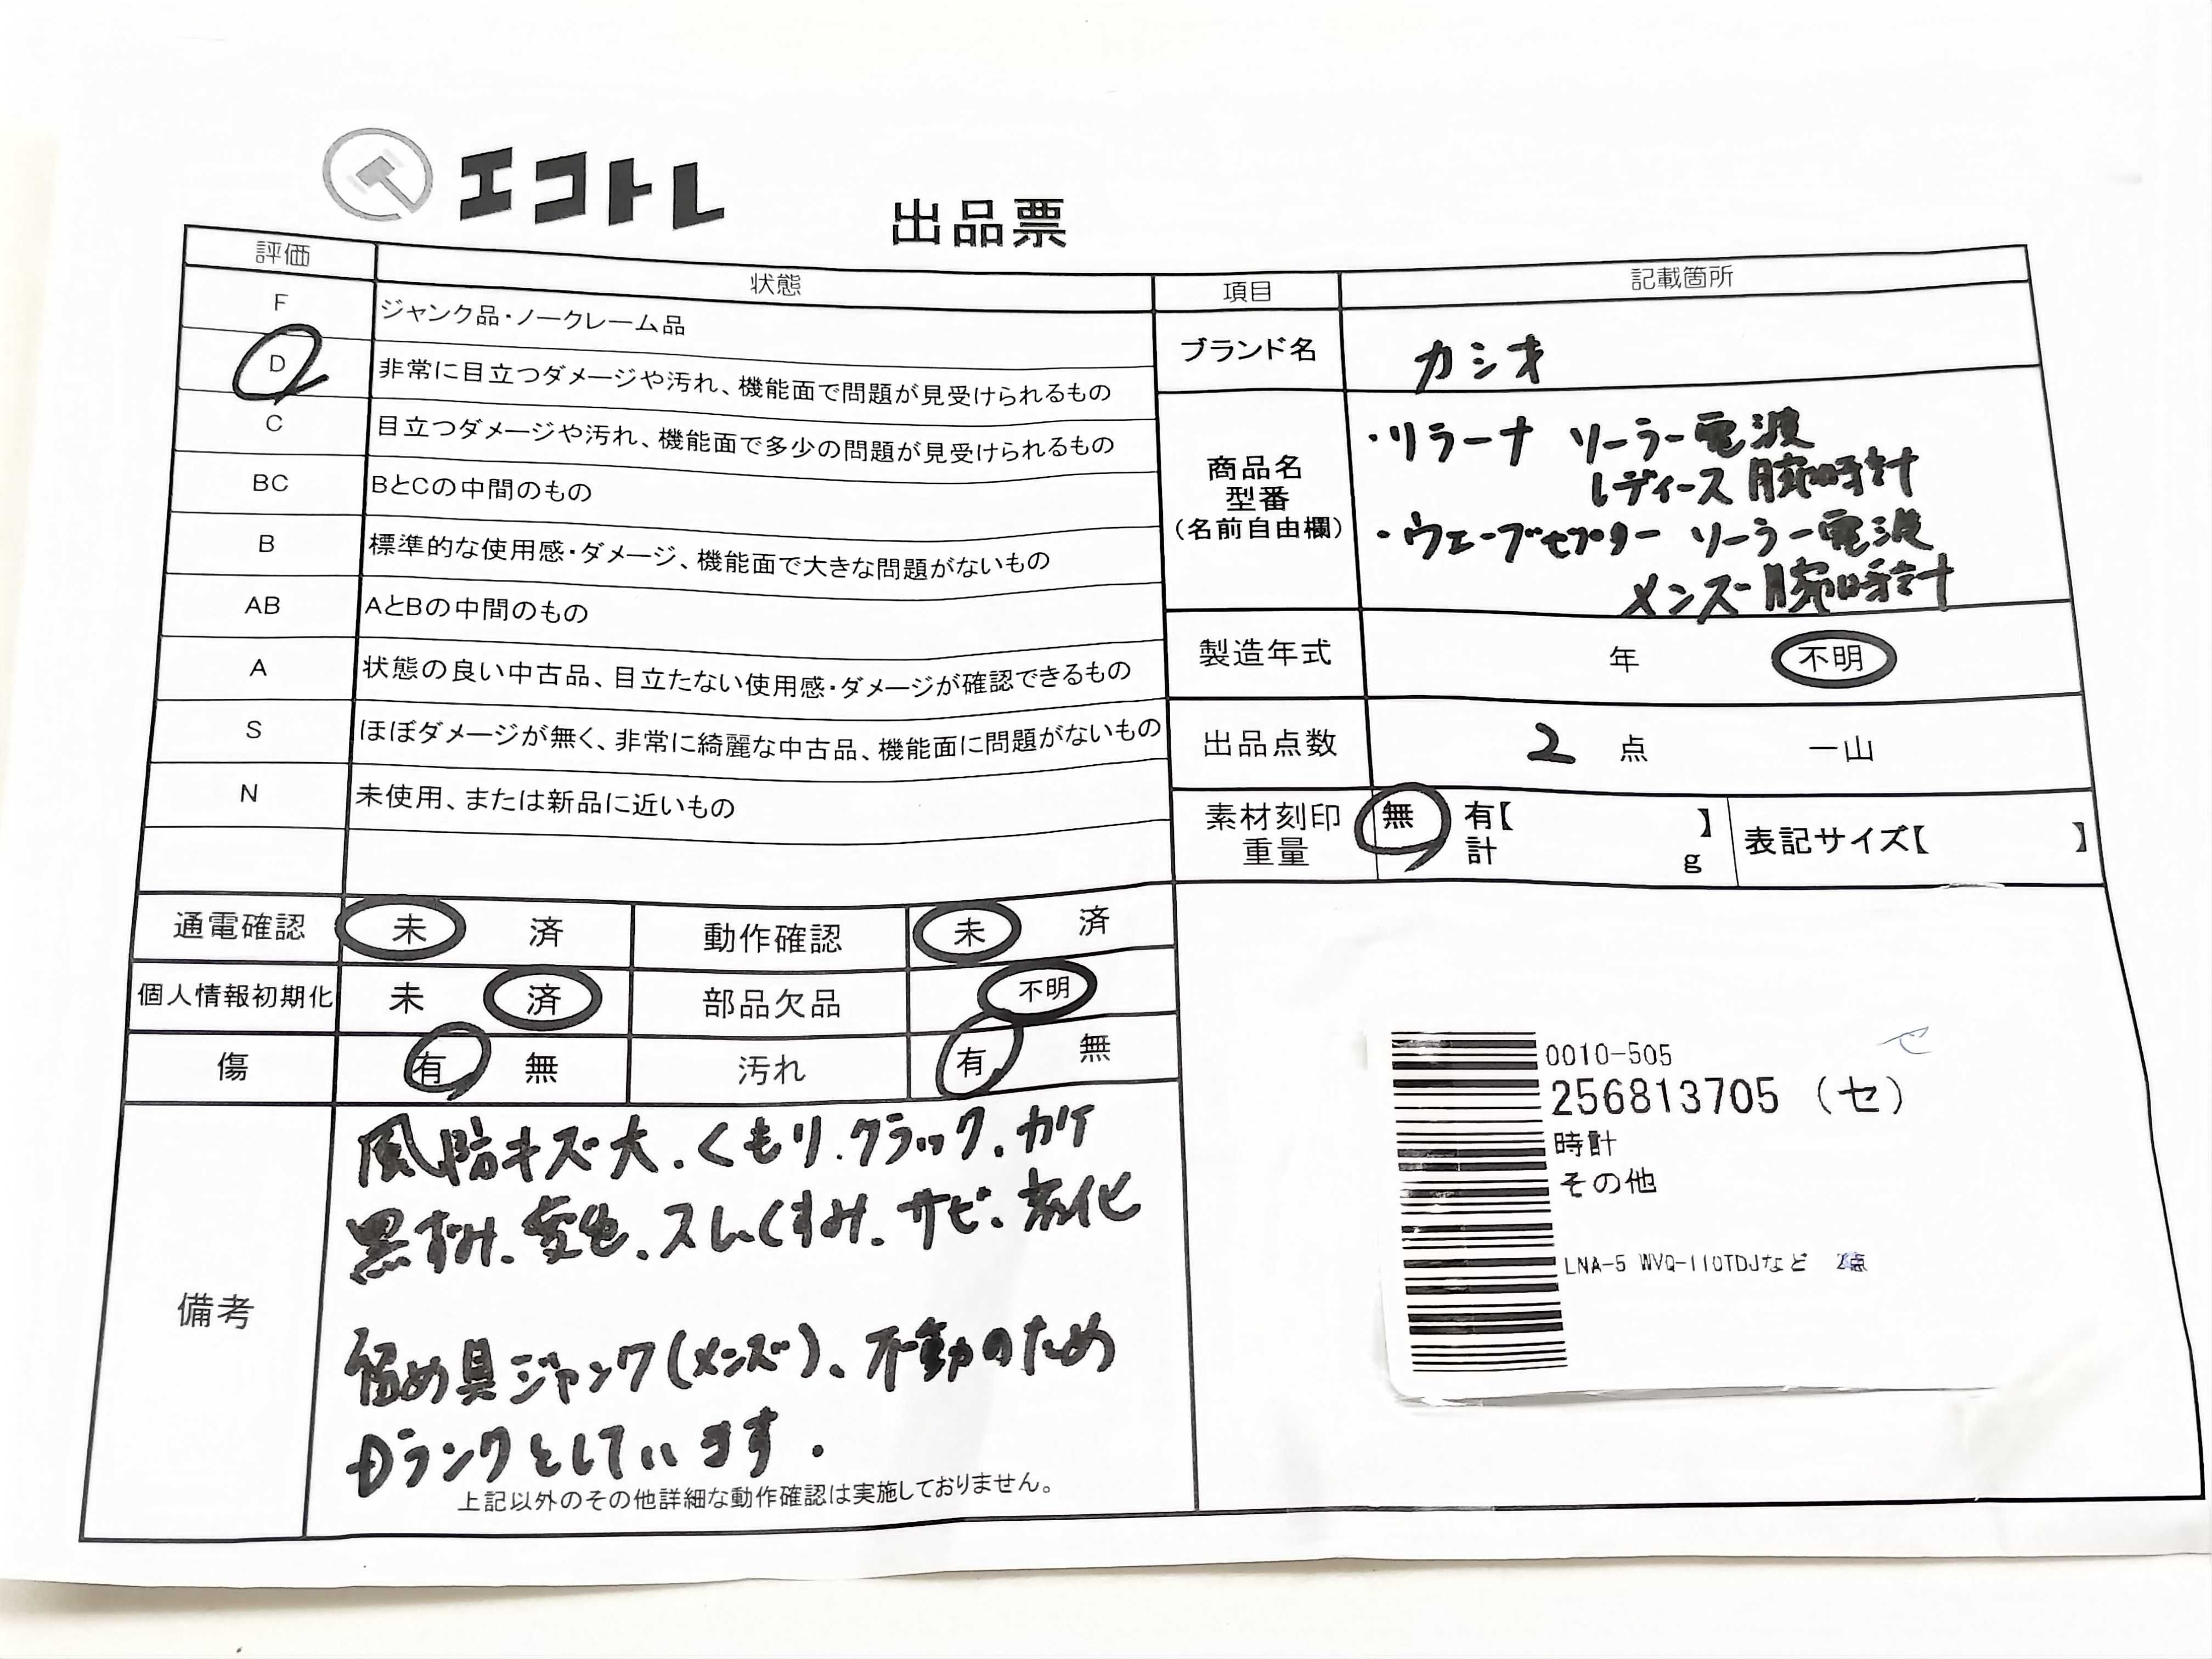 エコトレ
出品票
評価 状態
F ジャンク品・ノークレーム品
D 非常に目立つダメージや汚れ、機能面で問題が見受けられるもの
C 目立つダメージや汚れ、機能面で多少の問題が見受けられるもの
BC BとCの中間のもの
B 標準的な使用感・ダメージ、機能面で大きな問題がないもの
AB AとBの中間のもの
A 状態の良い中古品、目立たない使用感・ダメージが確認できるもの
S ほぼダメージが無く、非常に綺麗な中古品、機能面に問題がないもの
N 未使用、または新品に近いもの
項目 記載箇所
ブランド名 カシオ
商品名
型番
(名前自由欄)
・リラーナ ソーラー電波
レディース腕時計
・ウェーブセプター ソーラー電波
メンズ腕時計
製造年式 年 不明
出品点数 2 点 一山
素材刻印 無 有【 】
重量 計 g
表記サイズ【 】
通電確認 未 済 動作確認 未 済
個人情報初期化 未 済 部品欠品 不明
傷 有 無 汚れ 有 無
備考
風防キズ大.くもり.クラック.カケ
黒ずみ.変色.スレくすみ.サビ.劣化
留め具ジャンク(メンズ)、不動のため
Dランクとしています.
上記以外のその他詳細な動作確認は実施しておりません。
0010-505
256813705 (セ)
時計
その他
LNA-5 WVQ-110TDJなど 2点